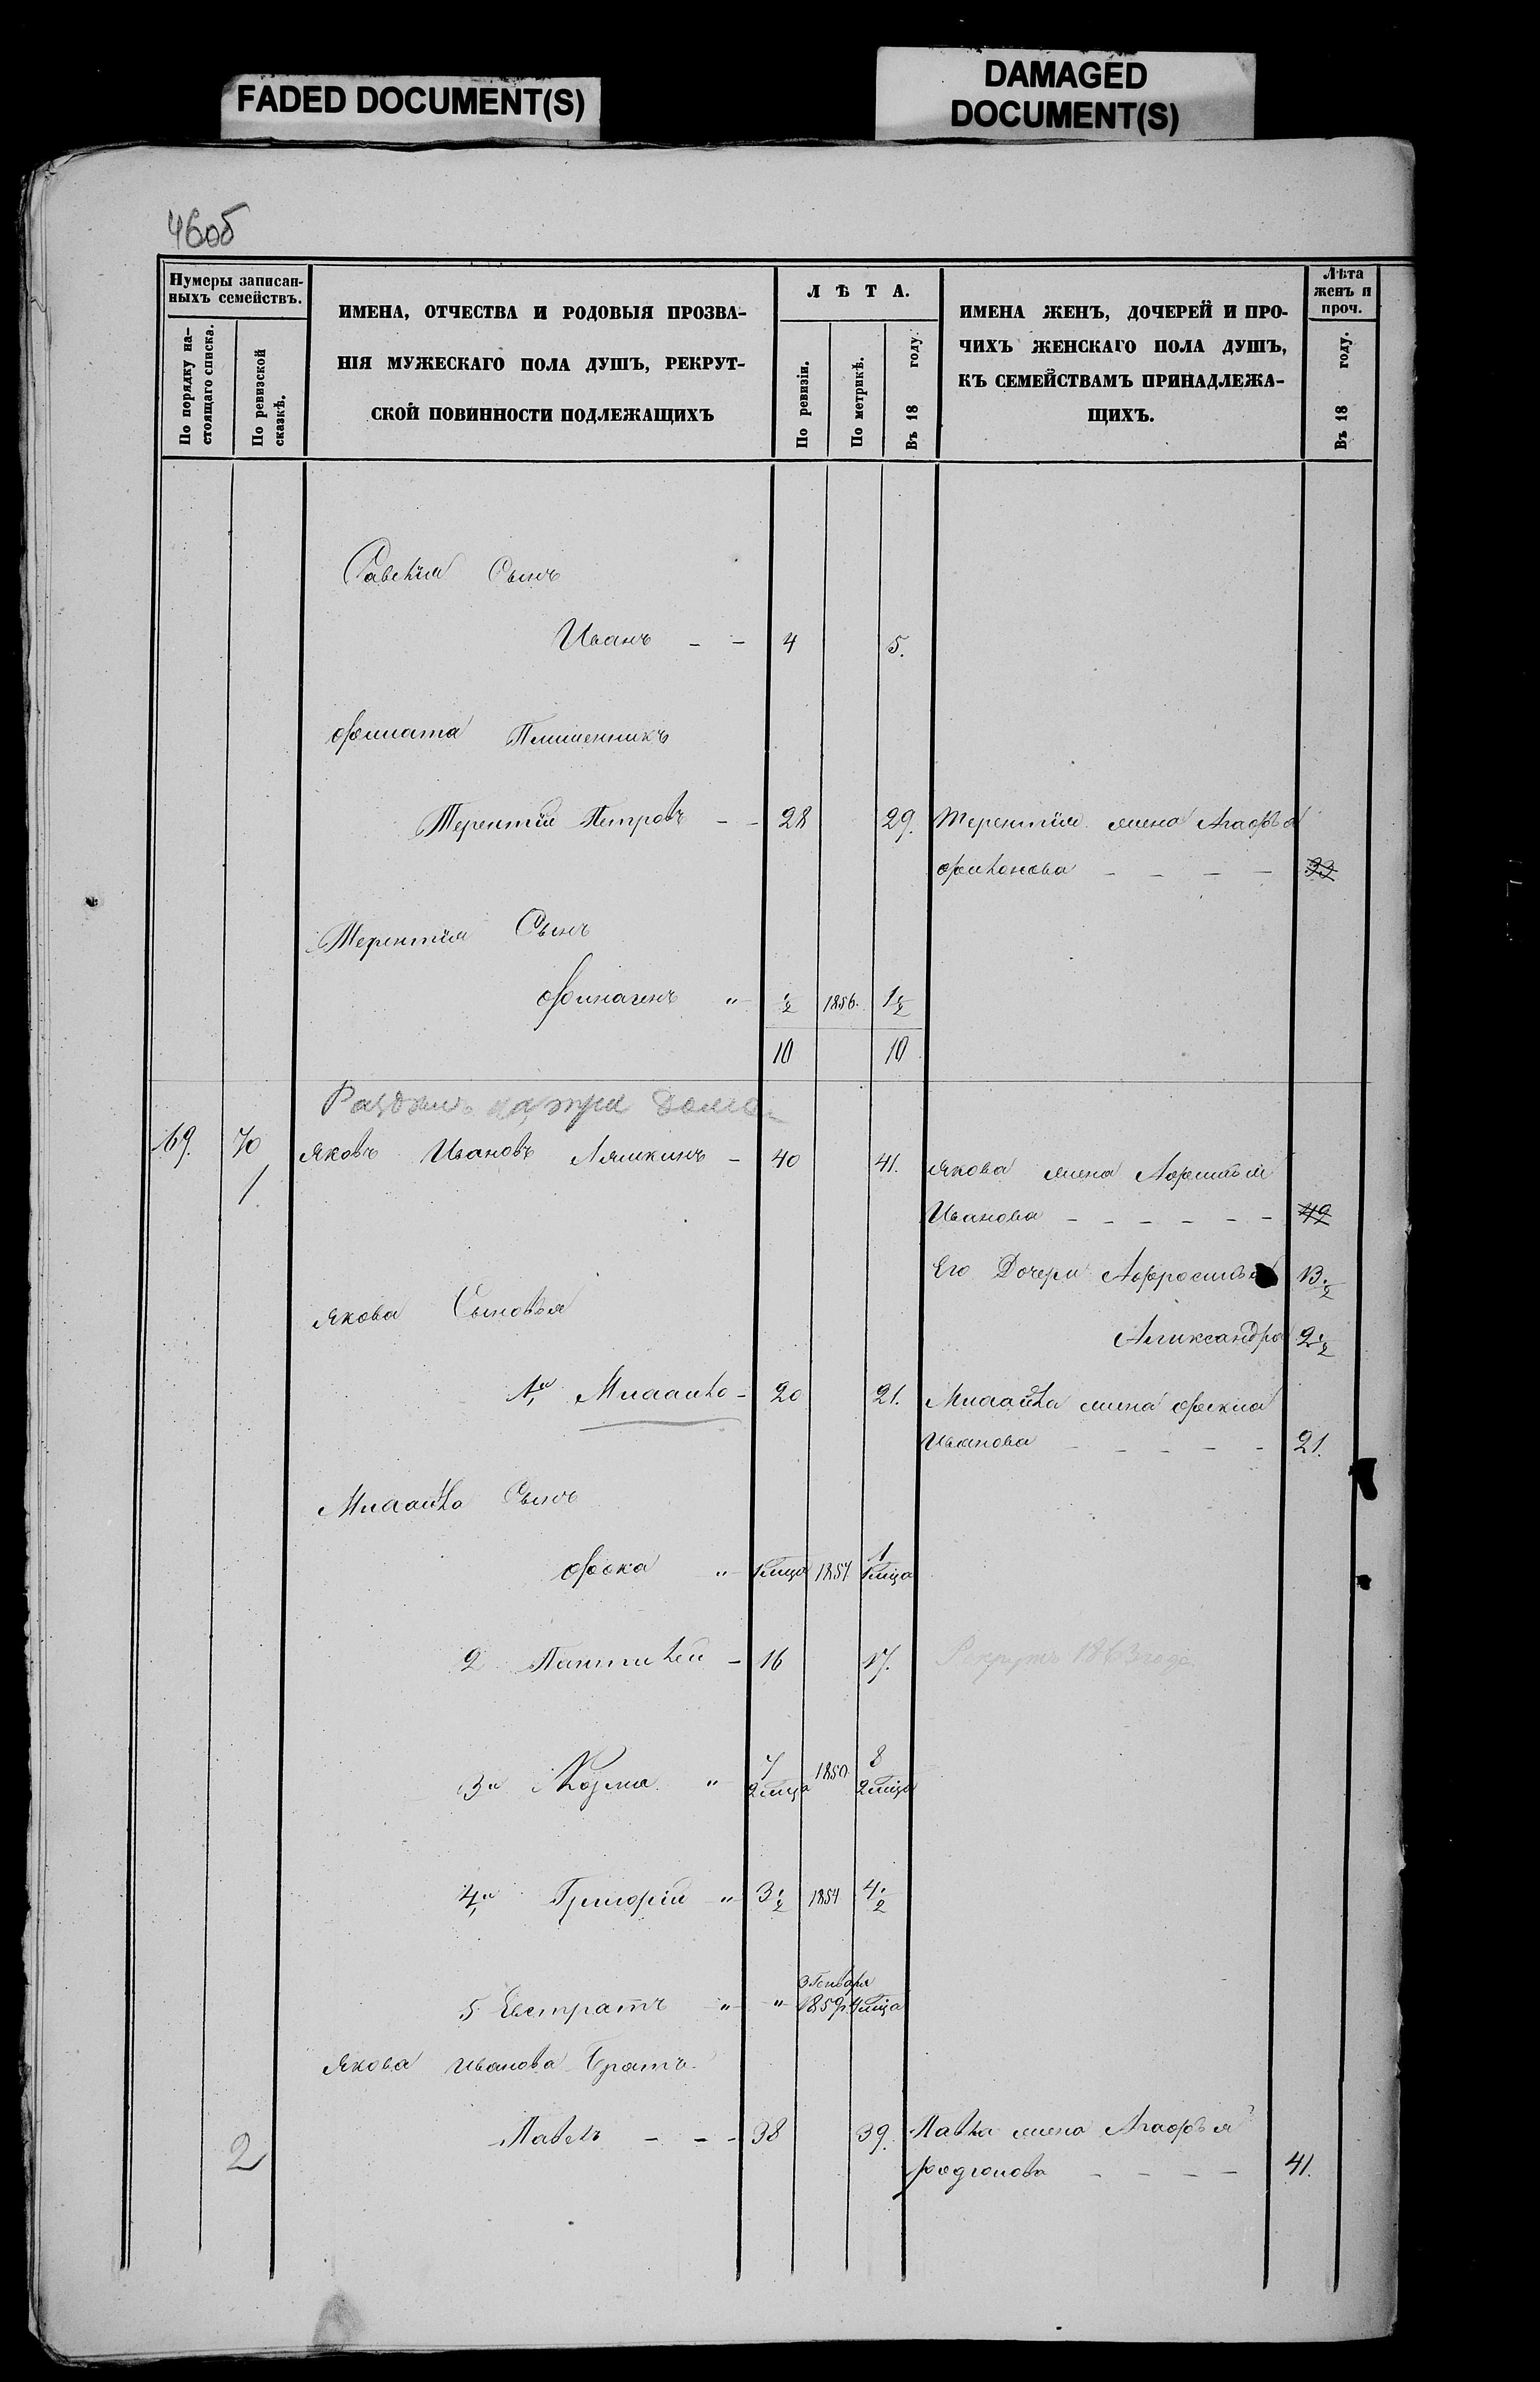 FADED DOCUMENT(S)
DAMAGED
DOCUMENT(S)
46об
Нумеры записан-
ныхъ семействъ.
По порядку на-
стоящаго списка.
По ревизской
сказкѣ.
ИМЕНА, ОТЧЕСТВА И РОДОВЫЯ ПРОЗВА-
НІЯ МУЖЕСКАГО ПОЛА ДУШЪ, РЕКРУТ-
СКОЙ ПОВИННОСТИ ПОДЛЕЖАЩИХЪ
ЛѢТА.
По ревизіи.
По метрикѣ.
Въ 18 году.
ИМЕНА ЖЕНЪ, ДОЧЕРЕЙ И ПРО-
ЧИХЪ ЖЕНСКАГО ПОЛА ДУШЪ,
КЪ СЕМЕЙСТВАМЪ ПРИНАДЛЕЖА-
ЩИХЪ.
Лѣта
женъ и
проч.
Въ 18 году.
Савелія Сынъ
Иванъ - - 4 5.
Племенникъ
Терентій Петровъ - - 28 29. Терентія жена Агафья
- - - - 33
Терентія Сынъ
" 1/2 1856. 1 1/2
10 10
Раздѣлъ на три дома
169. 70 Яковъ Ивановъ Лямкинъ - 40 41. Якова жена
1 Иванова - - - - - - 49
Его Дочери 13 1/2
Якова Сыновья
Александра 2 1/2
1й - 20 21. жена
Иванова - - - - - 21.
Сынъ
Фока " 1857 1
2 Пантилей - 16 17. Рекрутъ 1863 года
3й Козма " 7 1850. 8
2 мѣца 2 мѣца
4й Григорій " 3 1/2 1854 4 1/2
3 Генваря
5 Евстратъ " " 1859 4 мѣца
Якова Иванова Братъ
2 Павелъ - - - 38 39. Павла жена Агафья
Родіонова - - - - 41.